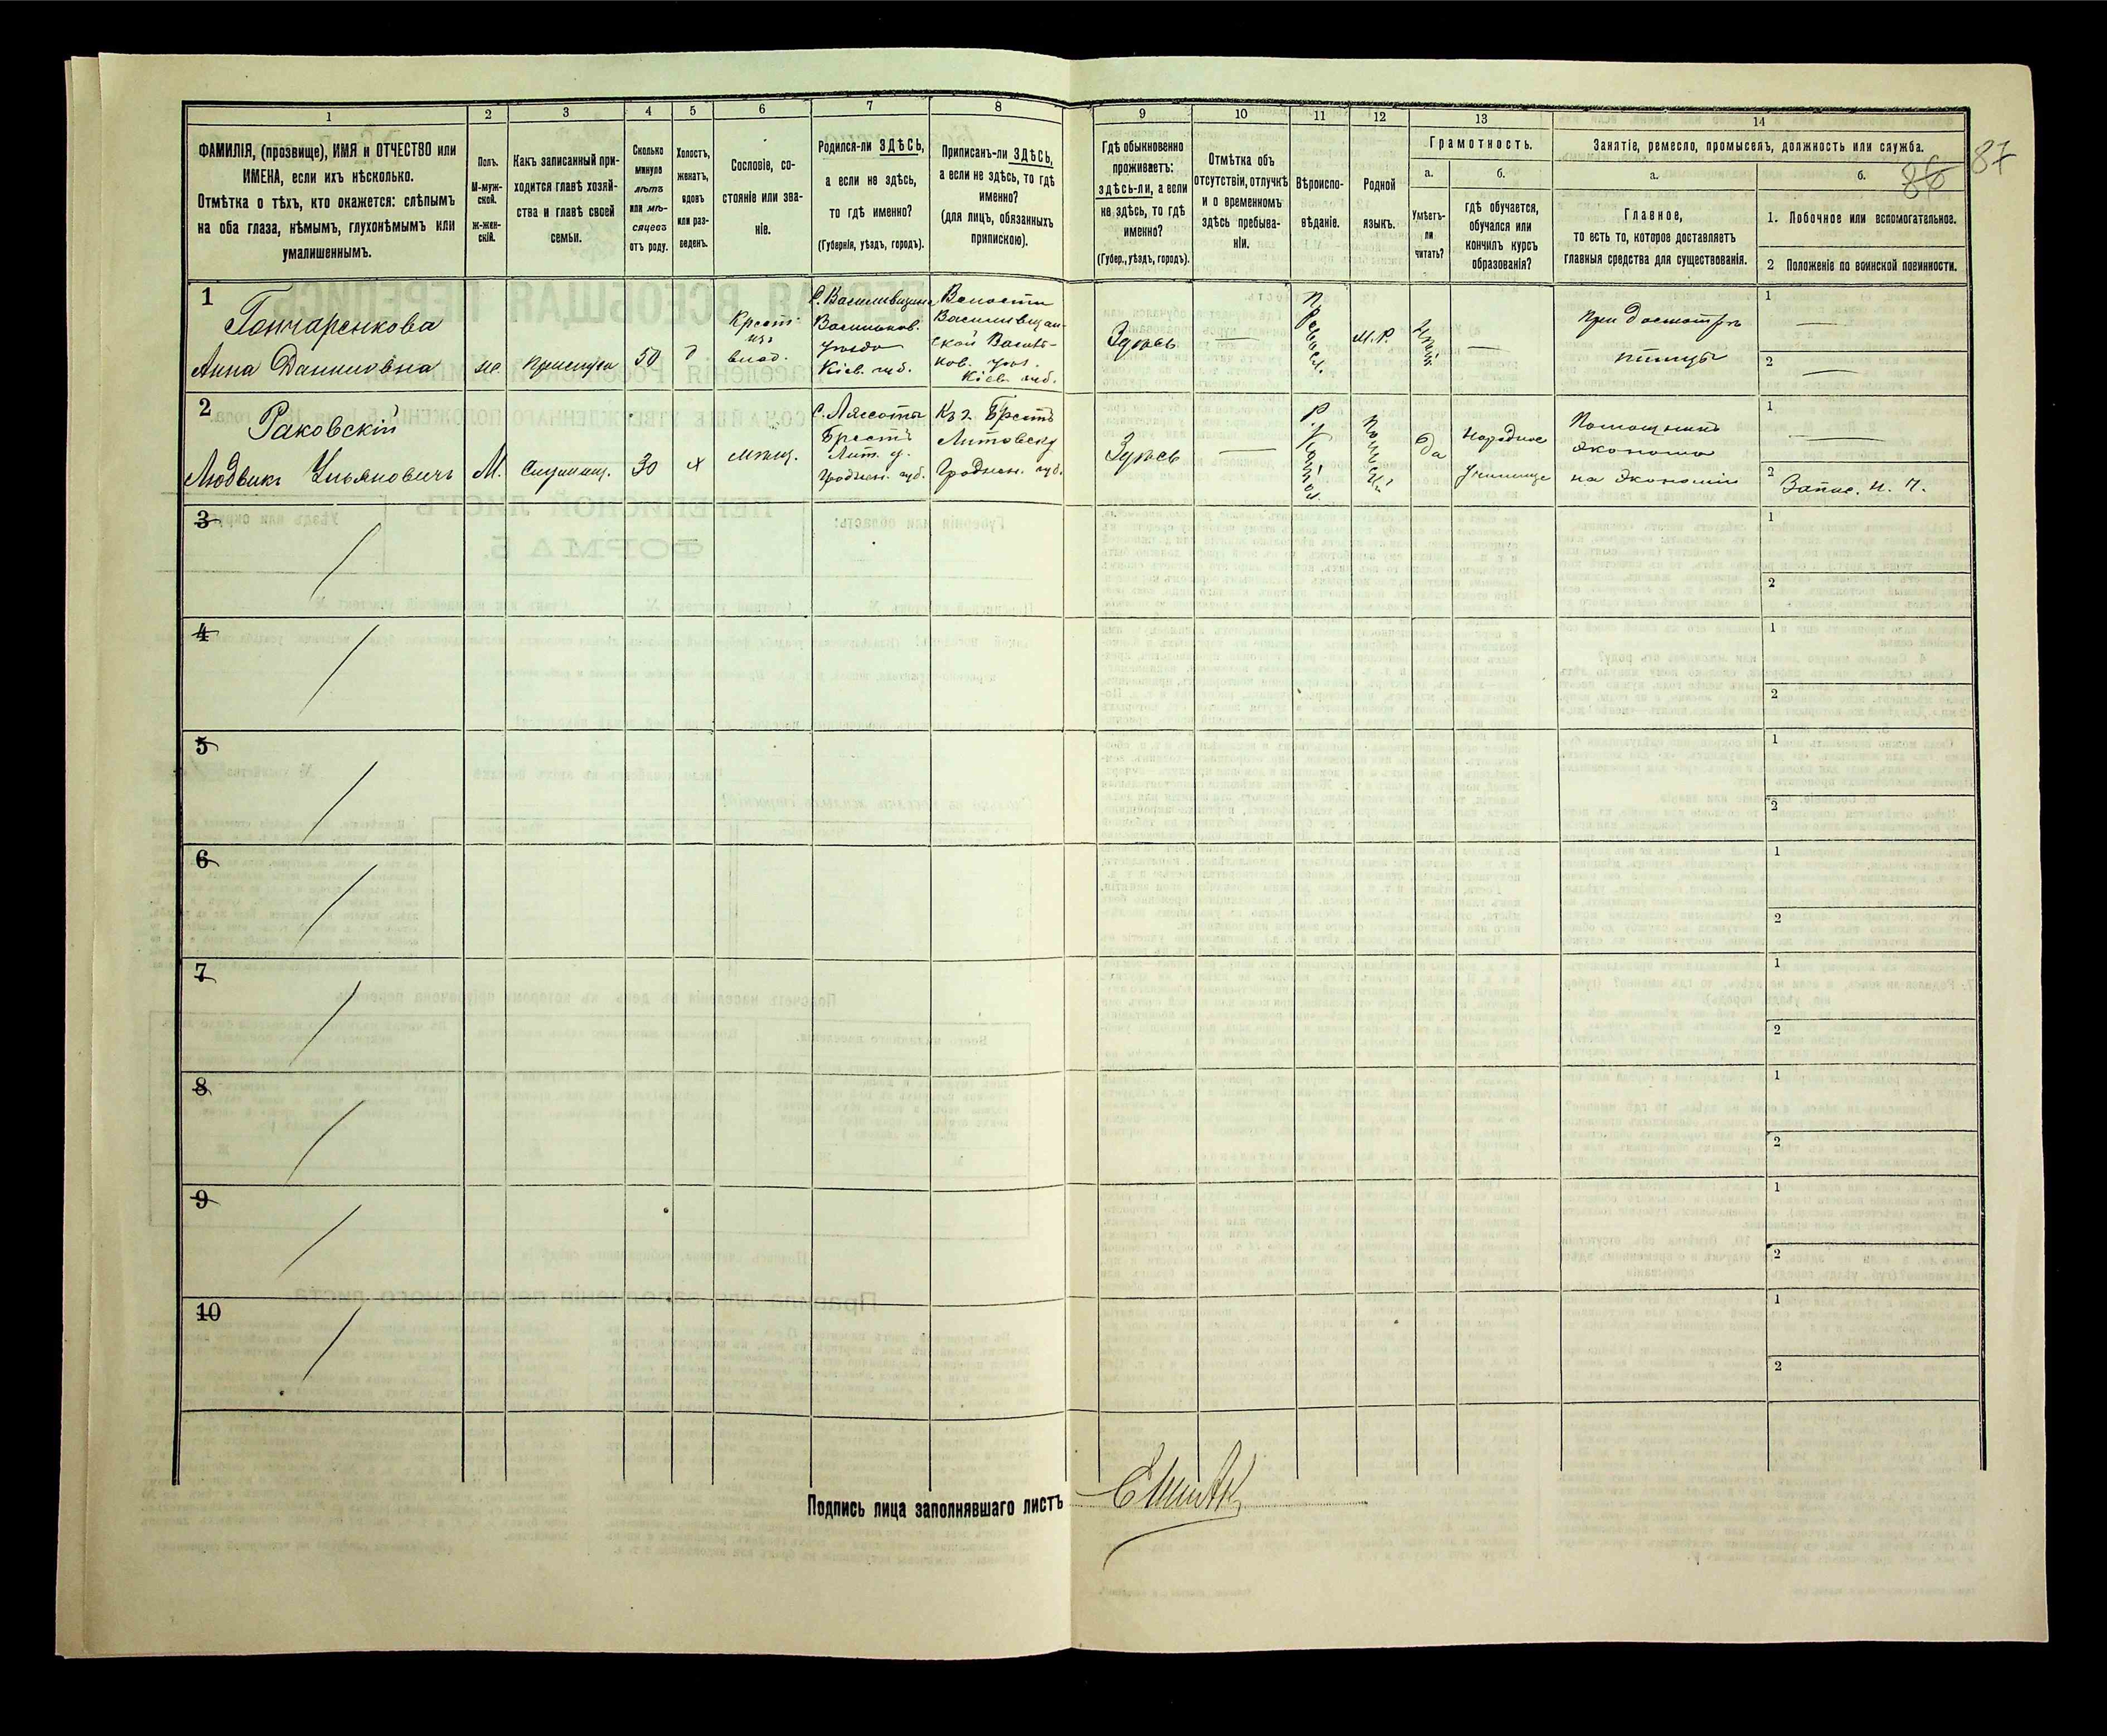 1
2
3
4
5
6
7
8
9
10
11
12
13
14
ФАМИЛІЯ, (прозвище), ИМЯ и ОТЧЕСТВО или
ИМЕНА, если ихъ нѣсколько.
Отмѣтка о тѣхъ, кто окажется: слѣпымъ
на оба глаза, нѣмымъ, глухонѣмымъ или
умалишеннымъ.
Полъ.
М-муж-
ской.
Ж-жен-
скій.
Какъ записанный при-
ходится главѣ хозяй-
ства и главѣ своей
семьи.
Сколько
минуло
лѣтъ
или мѣ-
сяцевъ
отъ роду.
Холостъ,
женатъ,
вдовъ
или раз-
веденъ.
Сословіе, со-
стояніе или зва-
ніе.
Родился-ли ЗДѢСЬ,
а если не здѣсь,
то гдѣ именно?
(Губернія, уѣздъ, городъ).
Приписанъ-ли ЗДѢСЬ,
а если не здѣсь, то гдѣ
именно?
(для лицъ, обязанныхъ
припискою).
Гдѣ обыкновенно
проживаетъ:
здѣсь-ли, а если
не здѣсь, то гдѣ
именно?
(Губер., уѣздъ, городъ).
Отмѣтка объ
отсутствіи, отлучкѣ
и о временномъ
здѣсь пребыва-
ніи.
Вѣроиспо-
вѣданіе.
Родной
языкъ.
Грамотность.
а.
Умѣетъ-
ли
читать?
б.
гдѣ обучается,
обучался или
кончилъ курсъ
образованія?
Занятіе, ремесло, промыселъ, должность или служба.
а.
Главное,
то есть то, которое доставляетъ
главныя средства для существованія.
б.
1. Побочное или вспомогательное.
2 Положеніе по воинской повинности.
86
87
1
Гончаренкова
Анна Даниловна
ж.
Прислуга
50
в
Крест.
изъ
влад.
Васильков.
уѣзда
Кіев. губ.
Волости
Кіев. губ.
Здѣсь
Правосл.
М.Р.
При досмотрѣ
птицы
1
2
2
Раковскій
Людвикъ Ульяновичъ
М.
Служащ.
30
х
Мѣщ.
Брестъ
Лит. у.
Гроднен. губ.
Къ г. Брестъ
Литовску
Гроднен. губ.
Здѣсь
Р. Катол.
Польскій
Да
Народное
училище
Помощникъ
эконома
въ экономіи
1
2
Запас. н. ч.
3
1
2
4
1
2
5
1
2
6
1
2
7
1
2
8
1
2
9
1
2
10
1
2
Подпись лица заполнявшаго листъ